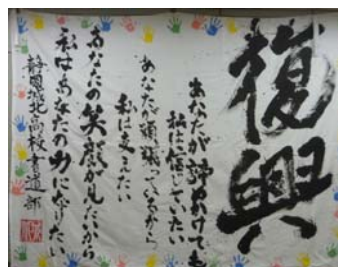 復興
あなたが諦めかけても
私は信じていたい
あなたが頑張っているから
私は支えたい
あなたの笑顔が見たいから
私はあなたの力になりたい
静岡城北高校書道部